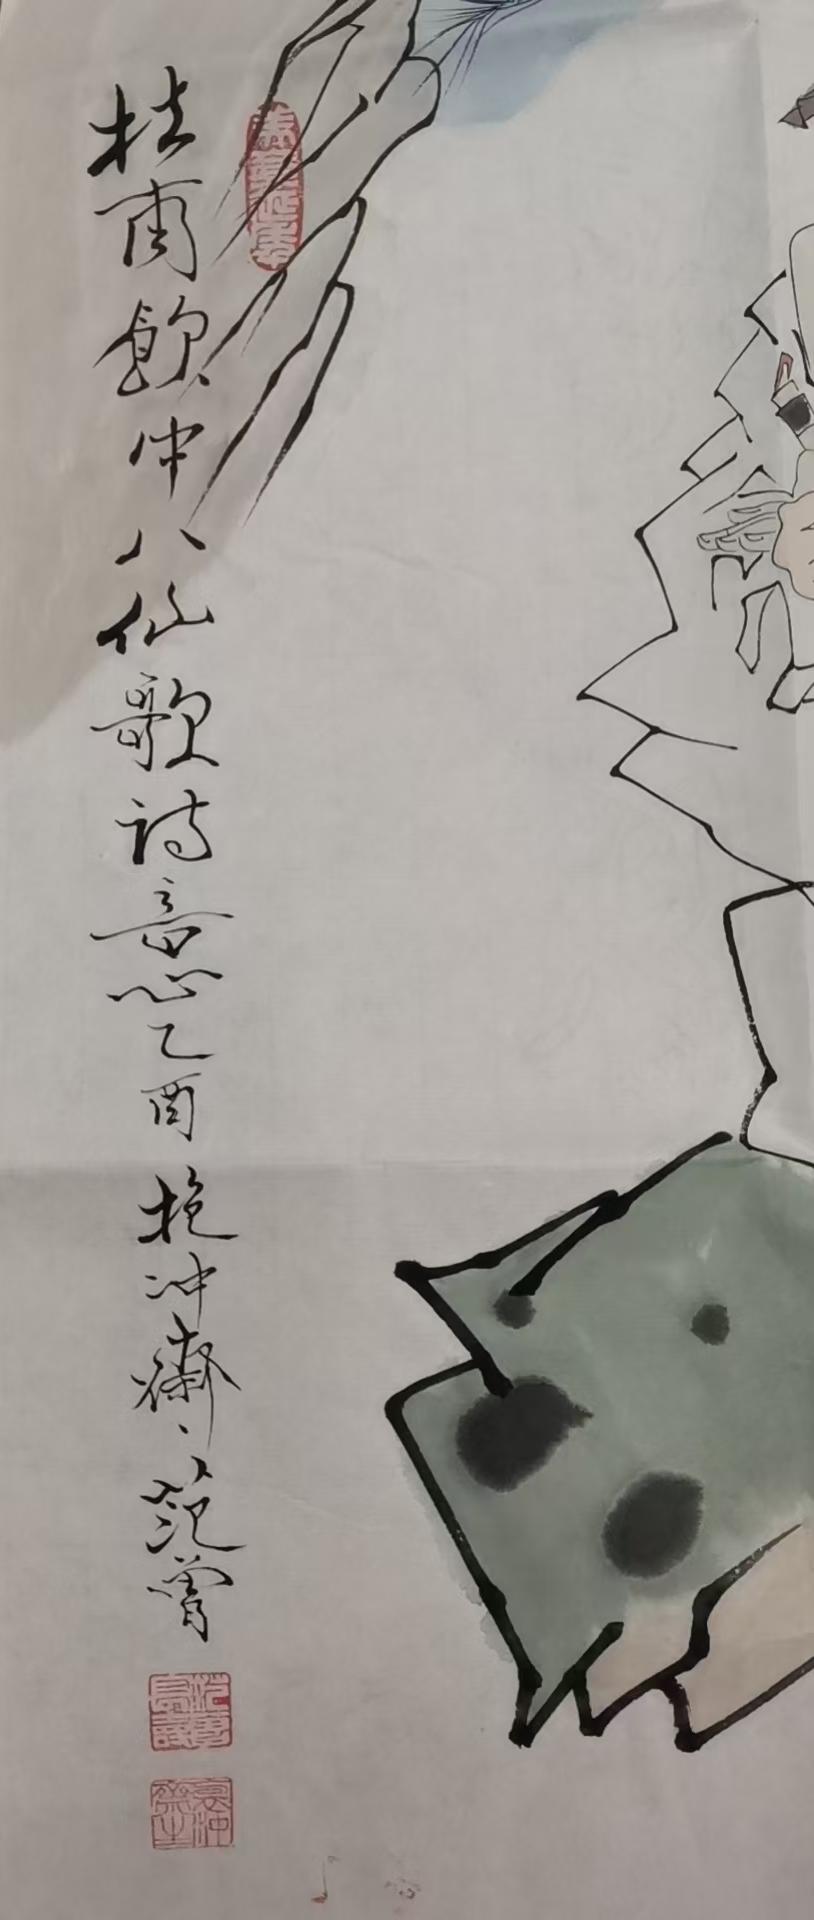 杜甫飲中八仙歌詩意乙酉抱冲齋范曾